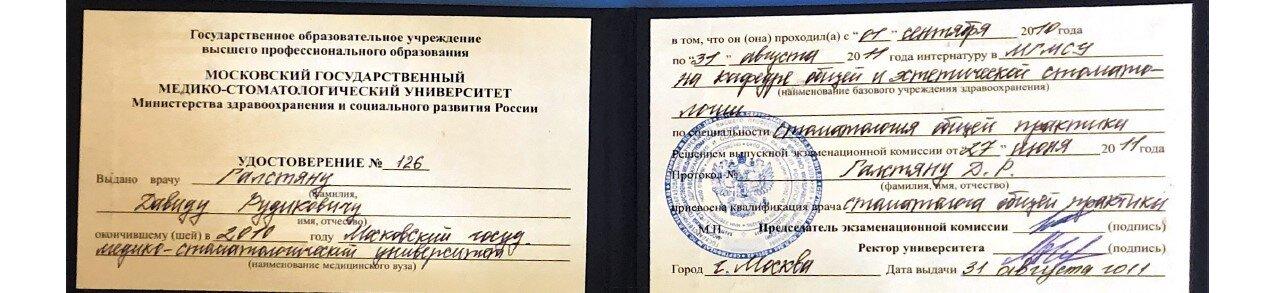 Государственное образовательное учреждение
высшего профессионального образования
МОСКОВСКИЙ ГОСУДАРСТВЕННЫЙ
МЕДИКО-СТОМАТОЛОГИЧЕСКИЙ УНИВЕРСИТЕТ
Министерства здравоохранения и социального развития России
УДОСТОВЕРЕНИЕ № 126
Выдано врачу Галстяну
(фамилия,
Давиду Рудиковичу
имя, отчество)
окончившему (шей) в 2010 году Московский госуд.
медико-стоматологический университет
(наименование медицинского вуза)
в том, что он (она) проходил(а) с "01" сентября 2010 года
по "31" августа 2011 года интернатуру в МГМСУ
на кафедре общей и эстетической стомато-
(наименование базового учреждения здравоохранения)
логии
по специальности стоматология общей практики
Решением выпускной экзаменационной комиссии от "27" июня 2011 года
Протокол № Галстяну Д. Р.
(фамилия, имя, отчество)
присвоена квалификация врача стоматолога общей практики
М.П. Председатель экзаменационной комиссии (подпись)
Ректор университета (подпись)
Город г. Москва Дата выдачи 31 августа 2011